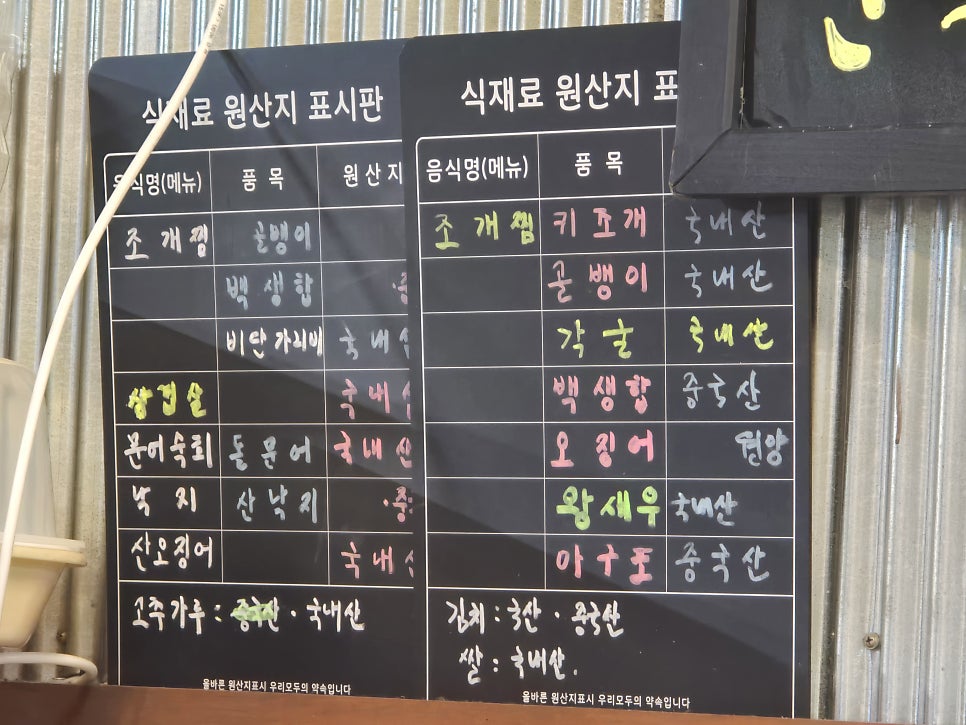 식재료 원산지 표시판
음식명(메뉴) 품목 원산지
조개찜 골뱅이
백생합
비단가리비 국내
삼겹살 국내
문어숙회 돌문어 국내산
낙지 산낙지
산오징어 국내
고추가루 : 중국산 · 국내산
올바른 원산지표시 우리모두의 약속입니다
식재료 원산지 표
음식명(메뉴) 품목
조개찜 키조개 국내산
골뱅이 국내산
각굴 국내산
백생합 중국산
오징어 원양
왕새우 국내산
아구포 중국산
김치 : 국산 · 중국산
쌀 : 국내산.
올바른 원산지표시 우리모두의 약속입니다